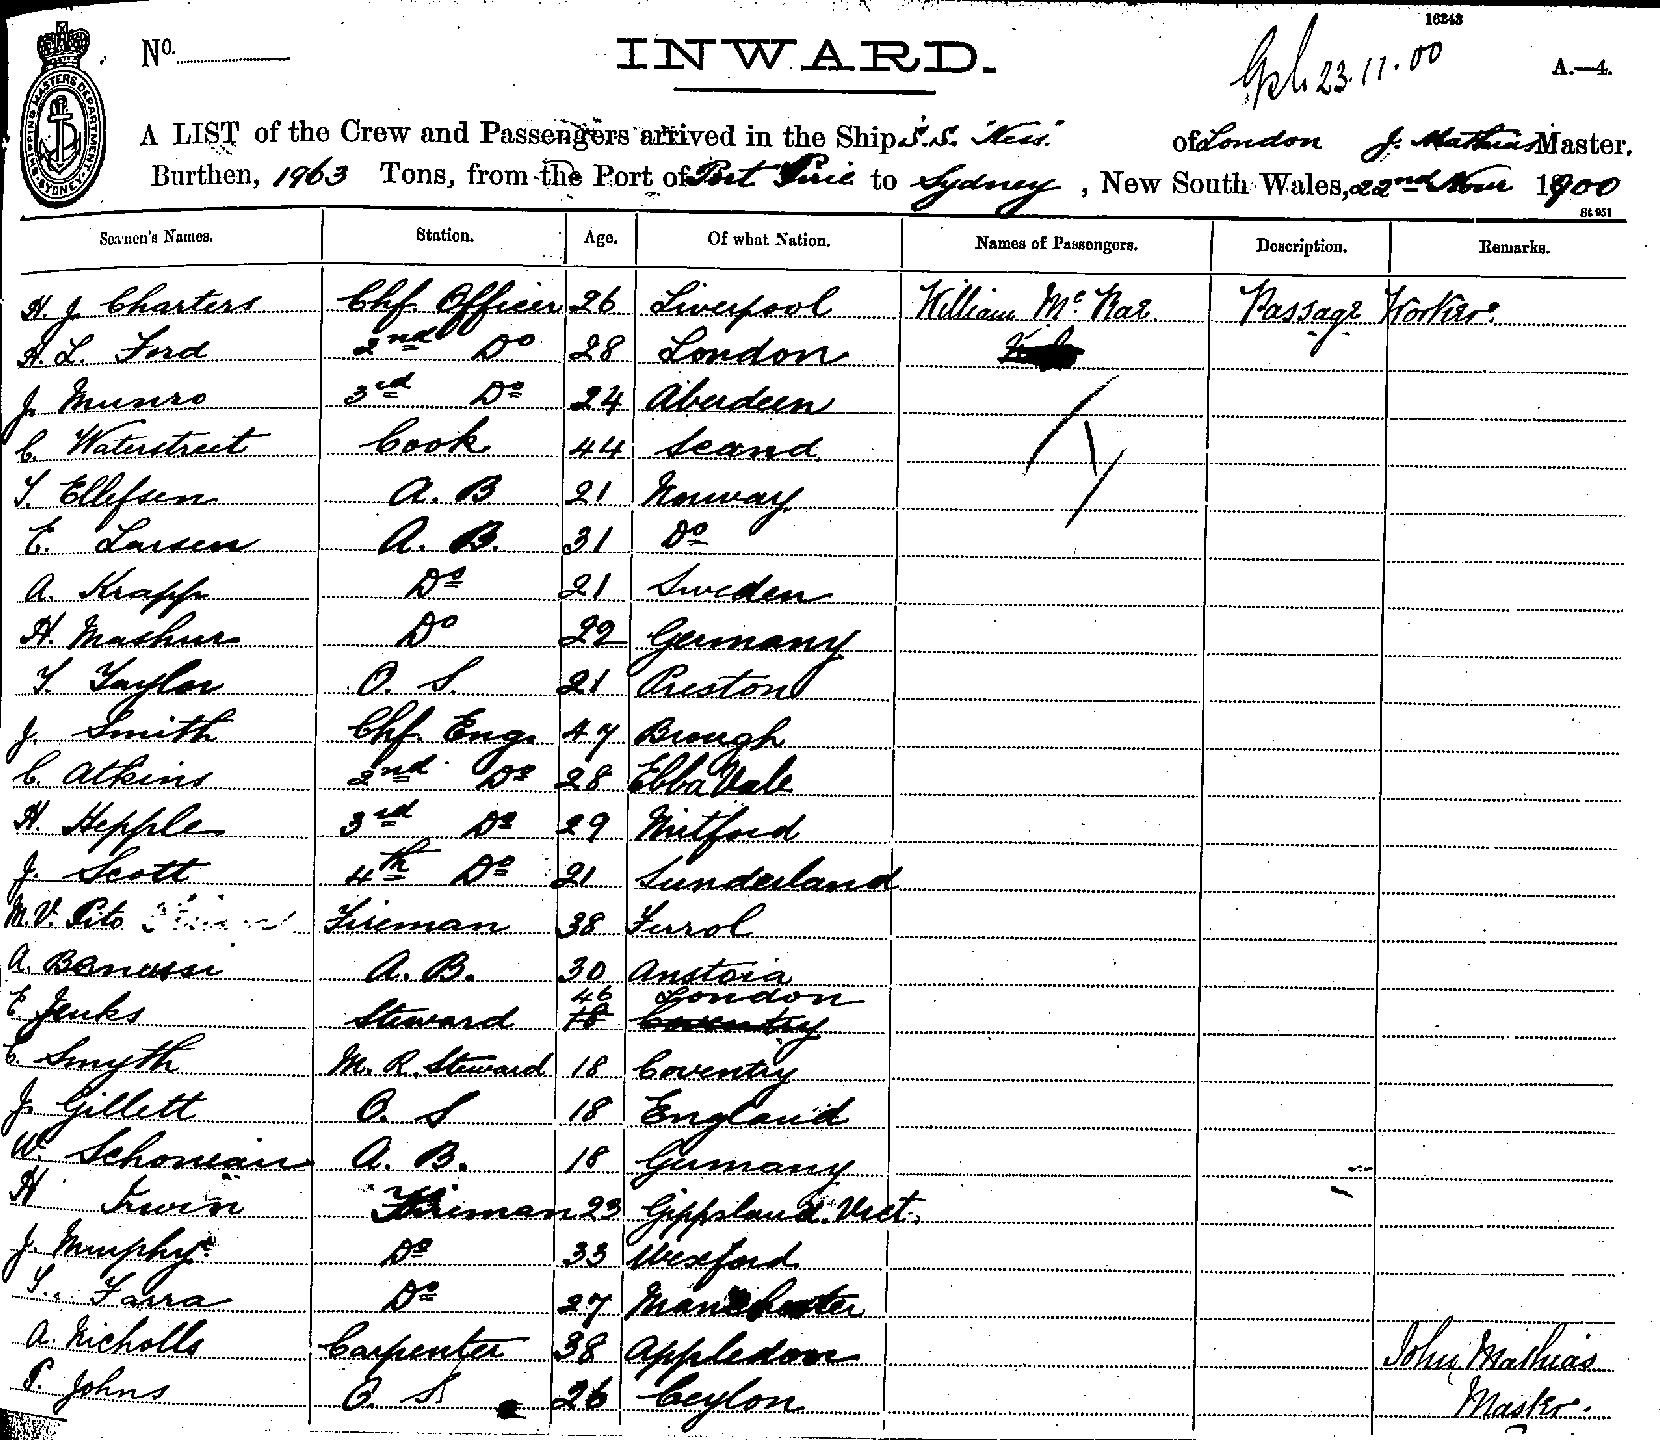 16243
No. INWARD. 23.11.00 A.—4.
SHIPPING MASTERS DEPARTMENT SYDNEY
A LIST of the Crew and Passengers arrived in the Ship S.S. "Ness" of London J. Mathias Master.
Burthen, 1963 Tons, from the Port of Port Pirie to Sydney, New South Wales, 22nd Novr 1900
St 951
Seamen's Names. Station. Age. Of what Nation. Names of Passengers. Description. Remarks.
H. J. Charters Chf. Officer 26 Liverpool William McRae Passage Worker.
H. L. Ford 2nd Do 28 London
J. Munro 3rd Do 24 Aberdeen
C. Waterstreet Cook 44 Scand.
T. Ellefsen A. B 21 Norway
E. Larsen A. B. 31 Do
A. Krapp Do 21 Sweden
H. Do 22 Germany
T. Taylor O. S. 21 Preston
J. Smith Chf. Eng. 47 Brough
C. Atkins 2nd Do 28 Ebba Vale
H. Hepple 3rd Do 29 Mitford
J. Scott 4th Do 21 Sunderland
M.V. Pito Fireman 38 Ferrol
A. Banussi A. B. 30 Austria
46 London
E Jenks Steward 18 Coventry
C. Smyth M. R. Steward 18 Coventry
J. Gillett O. S 18 England
W. Schonian A. B. 18 Germany
H Irwin Fireman 23 Gippsland Vict.
J. Murphy Do 33 Wexford
T. Farra Do 27 Manchester
A. Nicholls Carpenter 38 Appledore John Mathias
P. Johns O. S. 26 Ceylon Master.